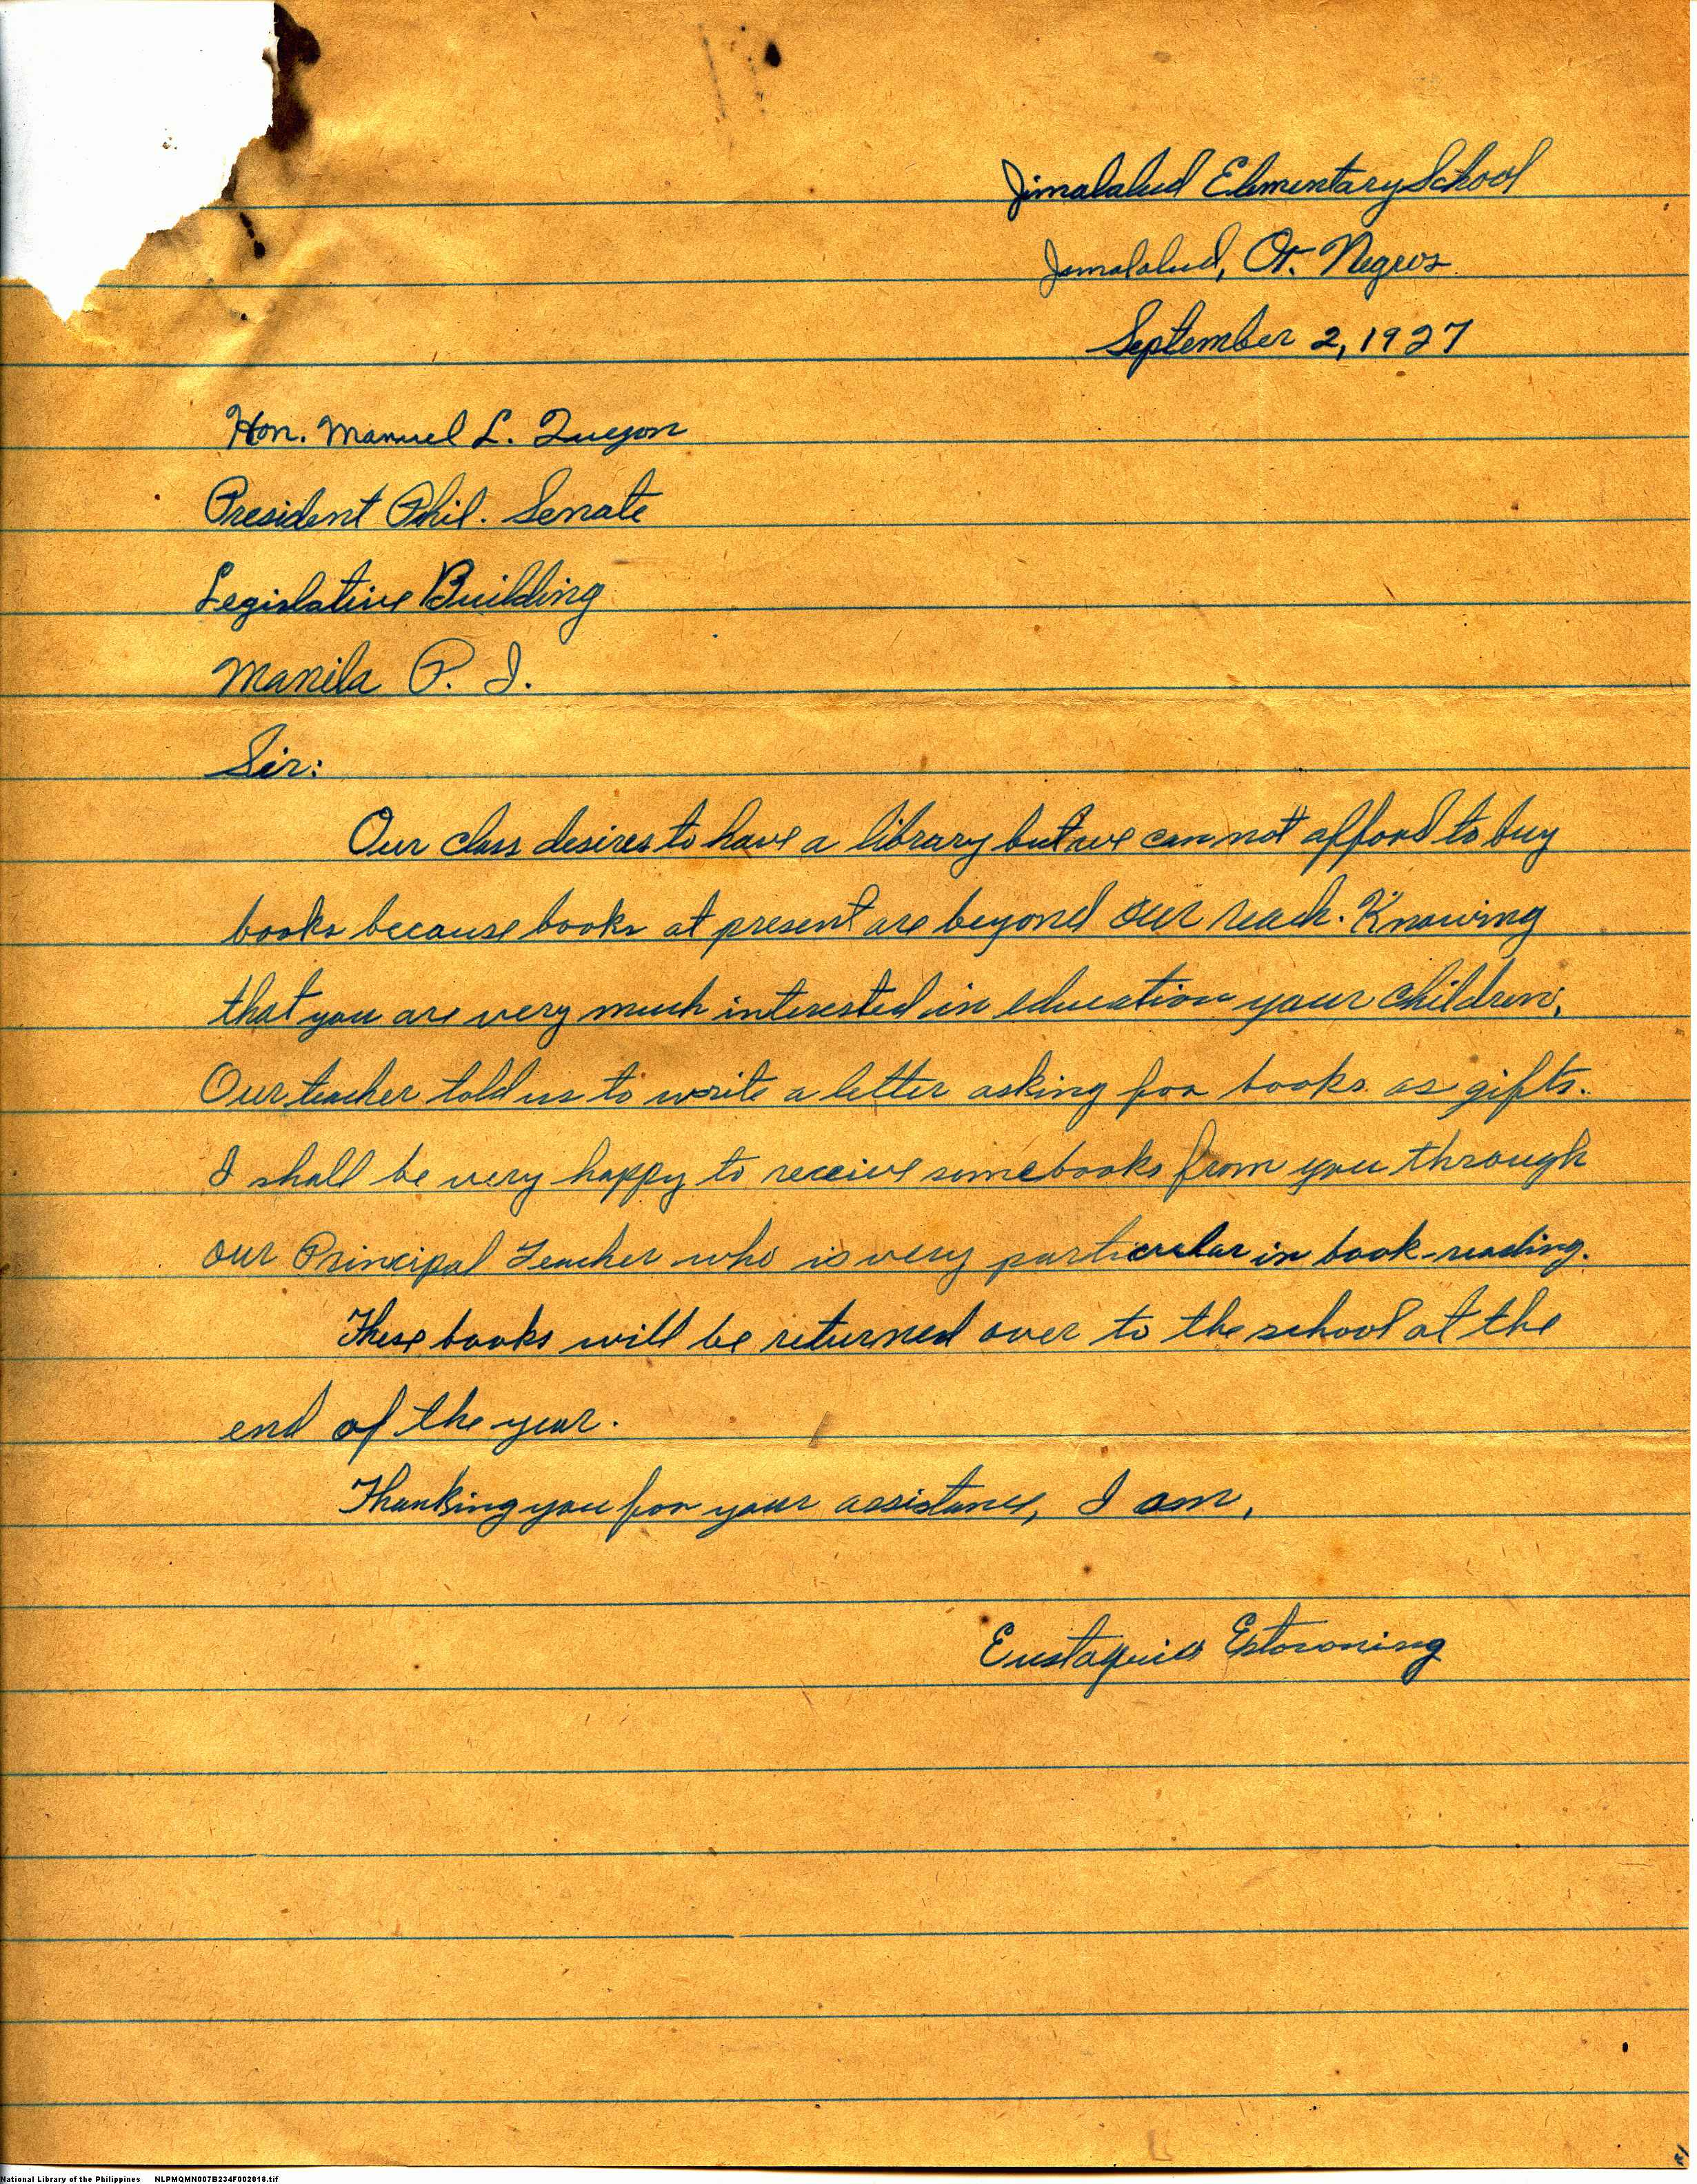 Jimalalud Elementary School
Jimalalud, Or. Negros
September 2, 1927
Hon. Manuel L. Quezon
President Phil. Senate
Legislative Building
Manila P. I.
Sir:
Our class desires to have a library but we can not afford to buy
books because books at present are beyond our reach. Knowing
that you are very much interested in education your children,
Our teacher told us to write a letter asking for books as gifts.
I shall be very happy to receive some books from you through
our Principal Teacher who is very particular in book-reading.
These books will be returned over to the school at the
end of the year.
Thanking you for your assistance, I am,
Eustaquio
National Library of the Philippines NLPMQMN007B234F002018.tif